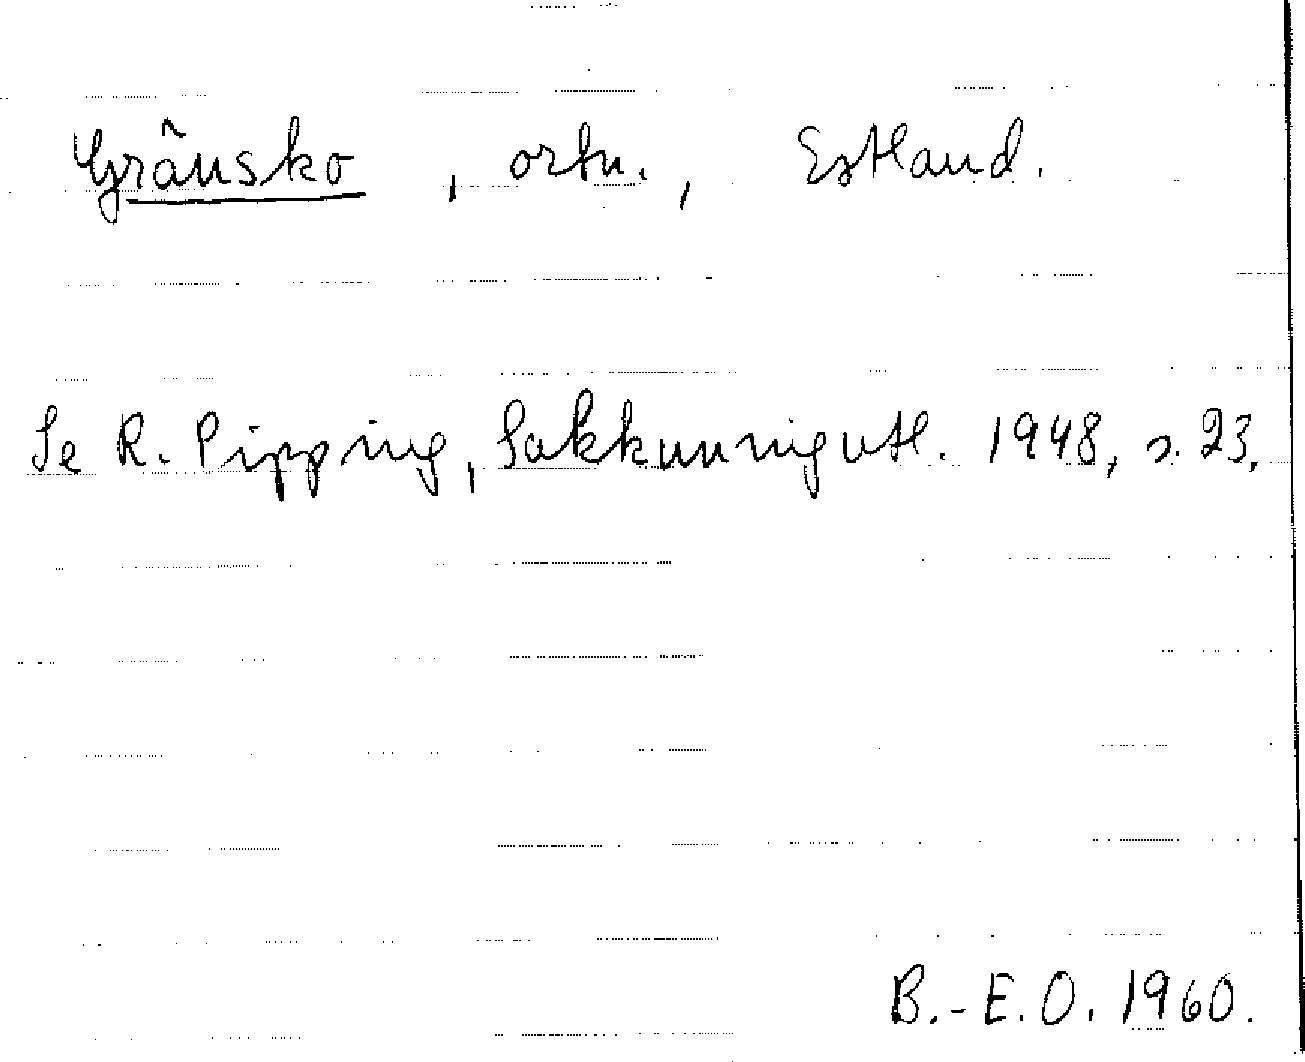 Gränsko, ortn., Estland.
Se R. Pipping, Sakkunnigutl. 1948, s. 23.
B.-E.O. 1960.